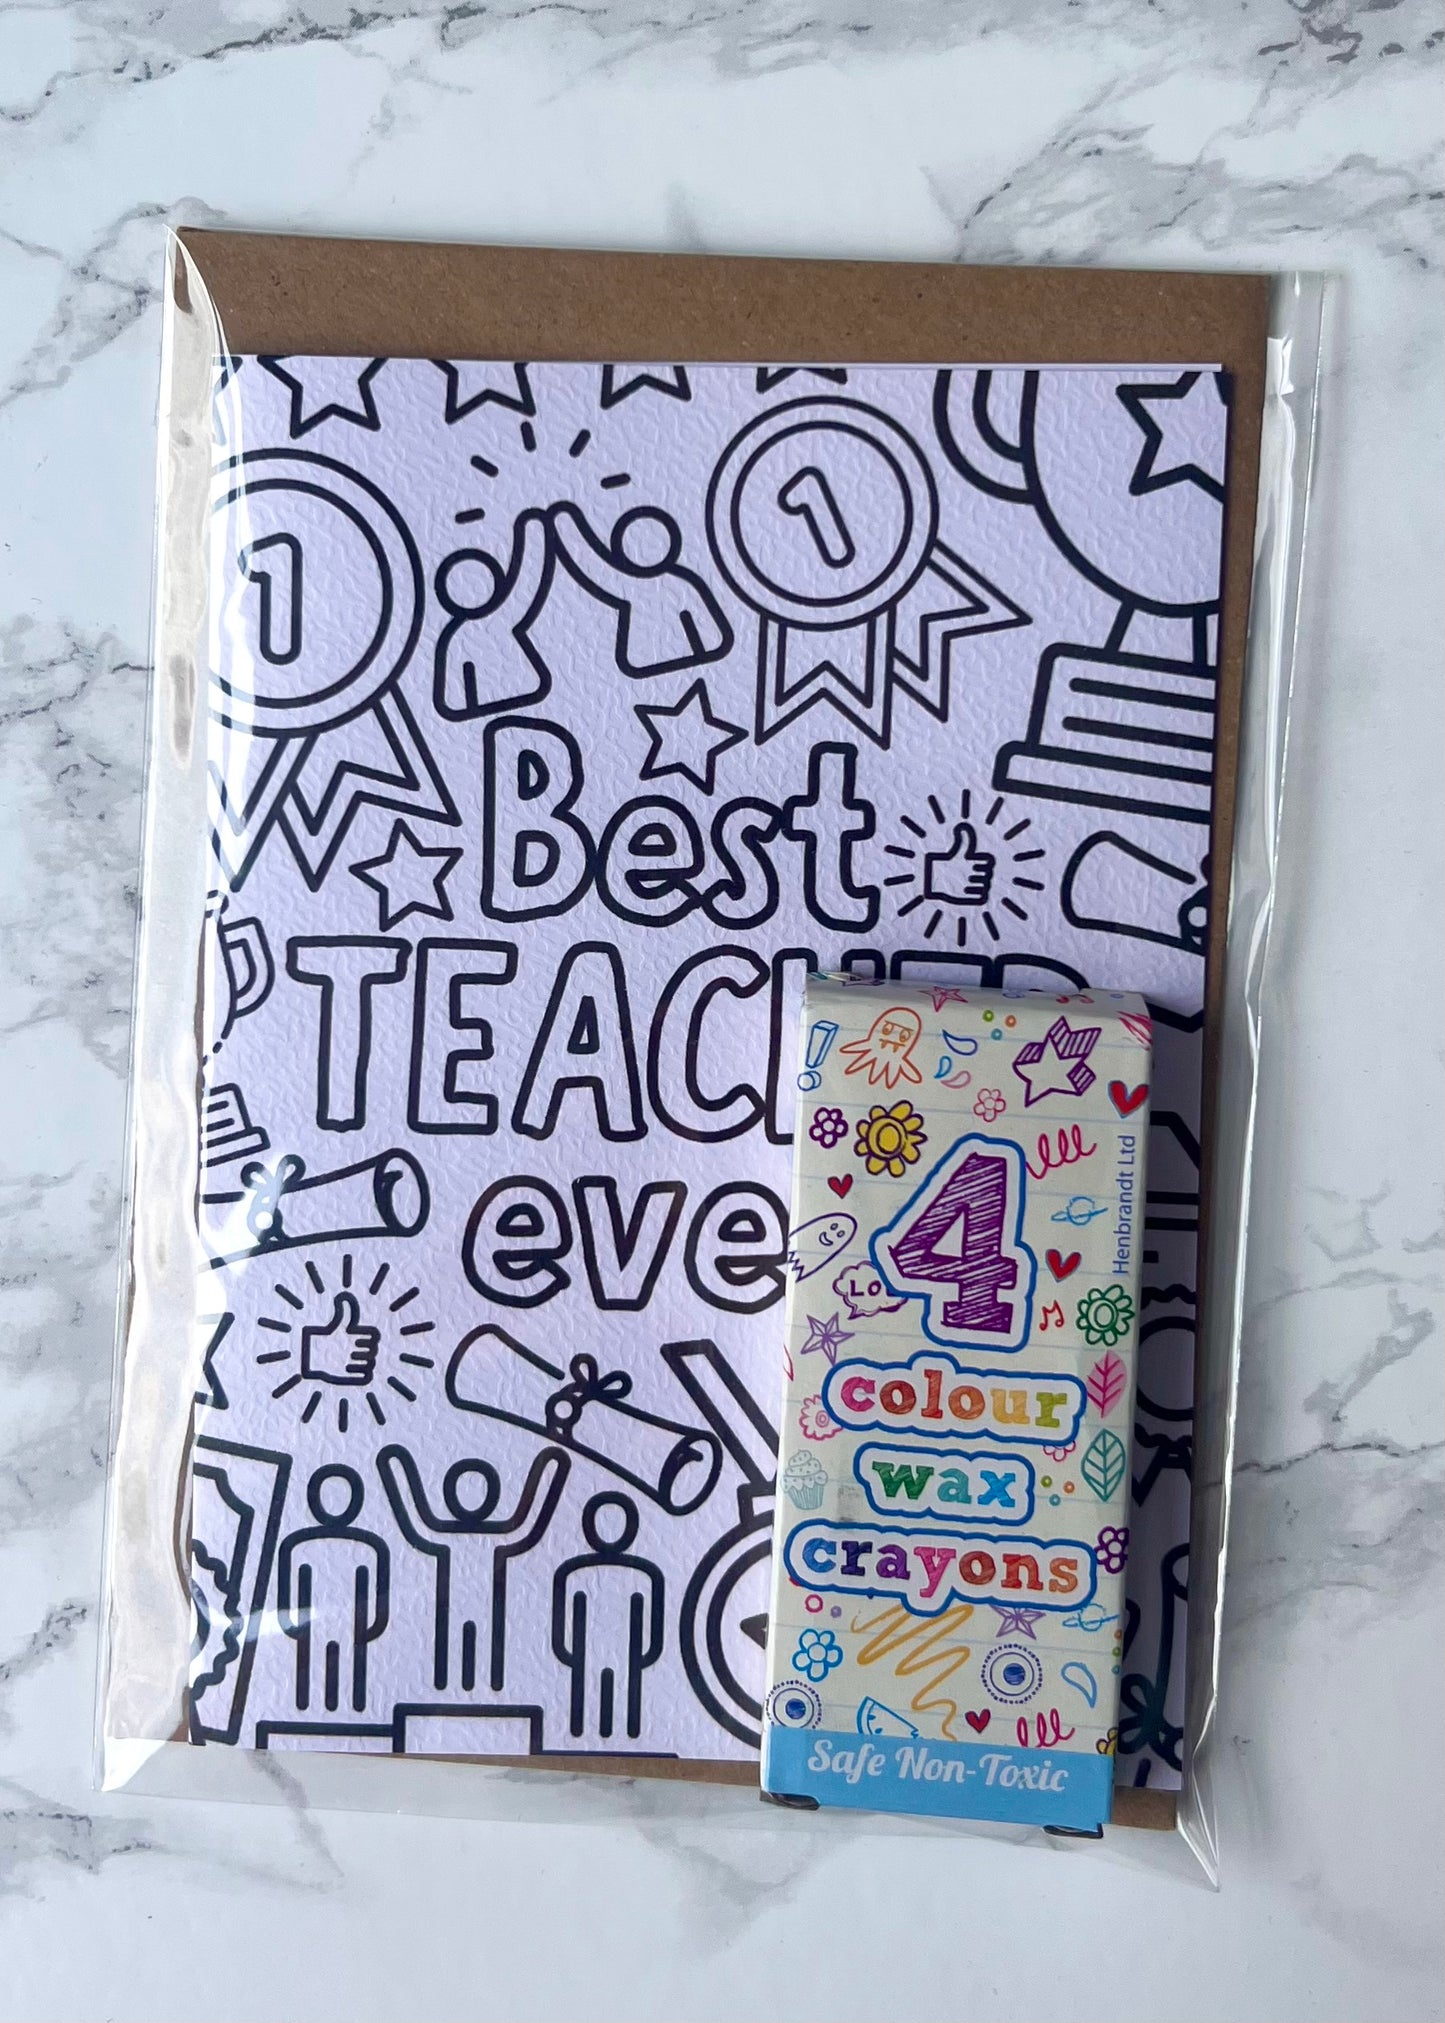 1
1
Best
TEACHER
eve
Henbrandt Ltd
4
colour
wax
crayons
Safe Non-Toxic